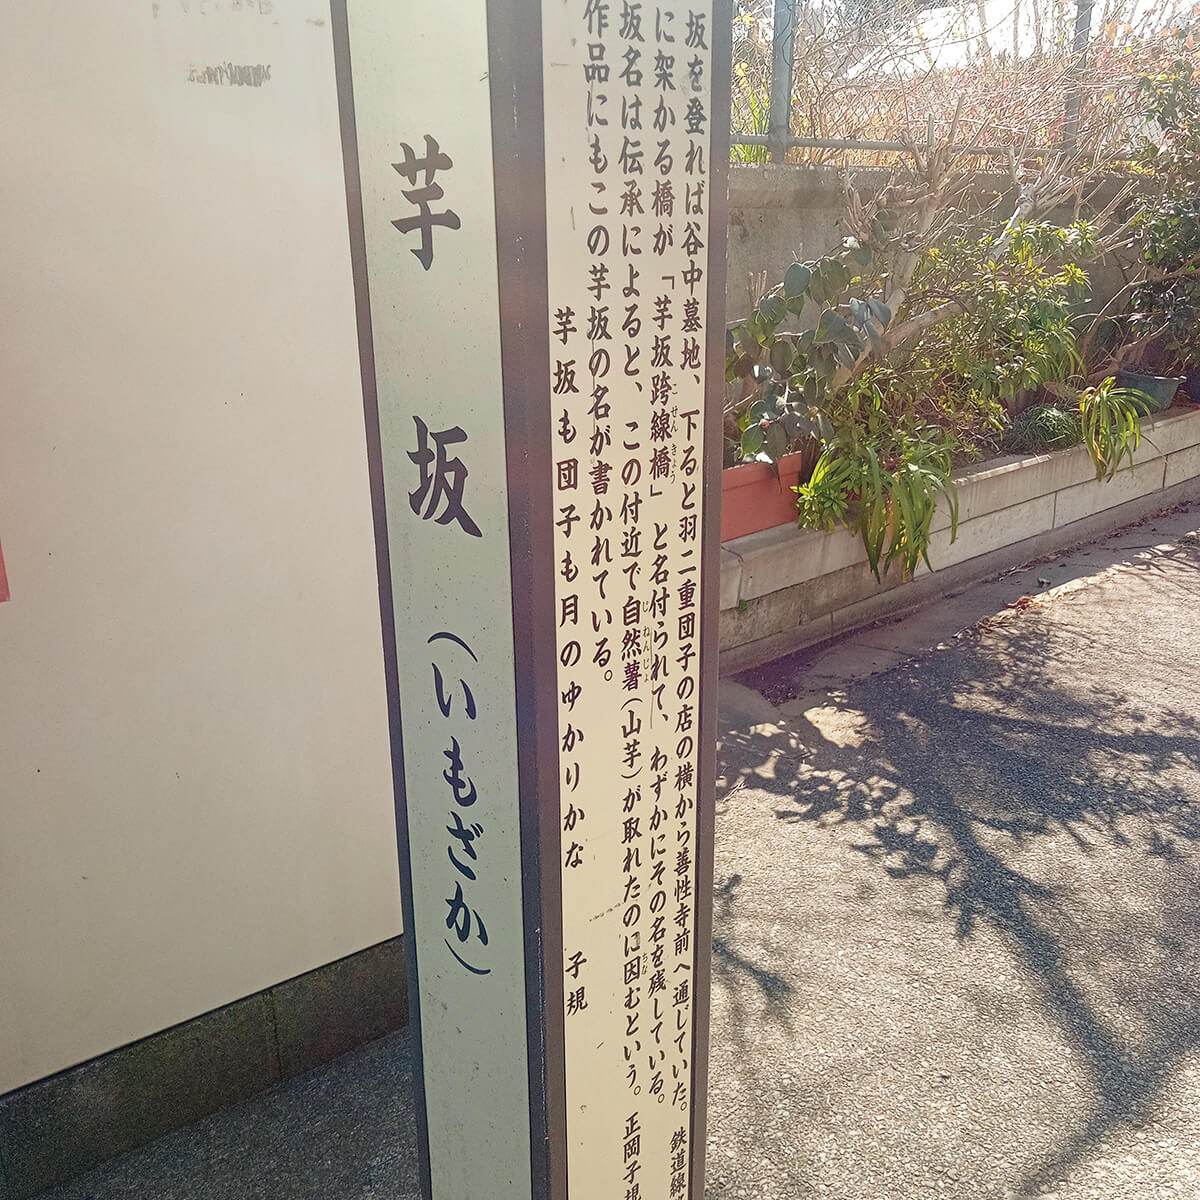 芋坂（いもざか）
坂を登れば谷中墓地、下ると羽二重団子の店の横から善性寺前へ通じていた。鉄道線
に架かる橋が「芋坂跨線橋」と名付られて、わずかにその名を残している。
こせんきょう
坂名は伝承によると、この付近で自然薯（山芋）が取れたのに因むという。正岡子規
じねんじょ
ちな
作品にもこの芋坂の名が書かれている。
芋坂も団子も月のゆかりかな　子規